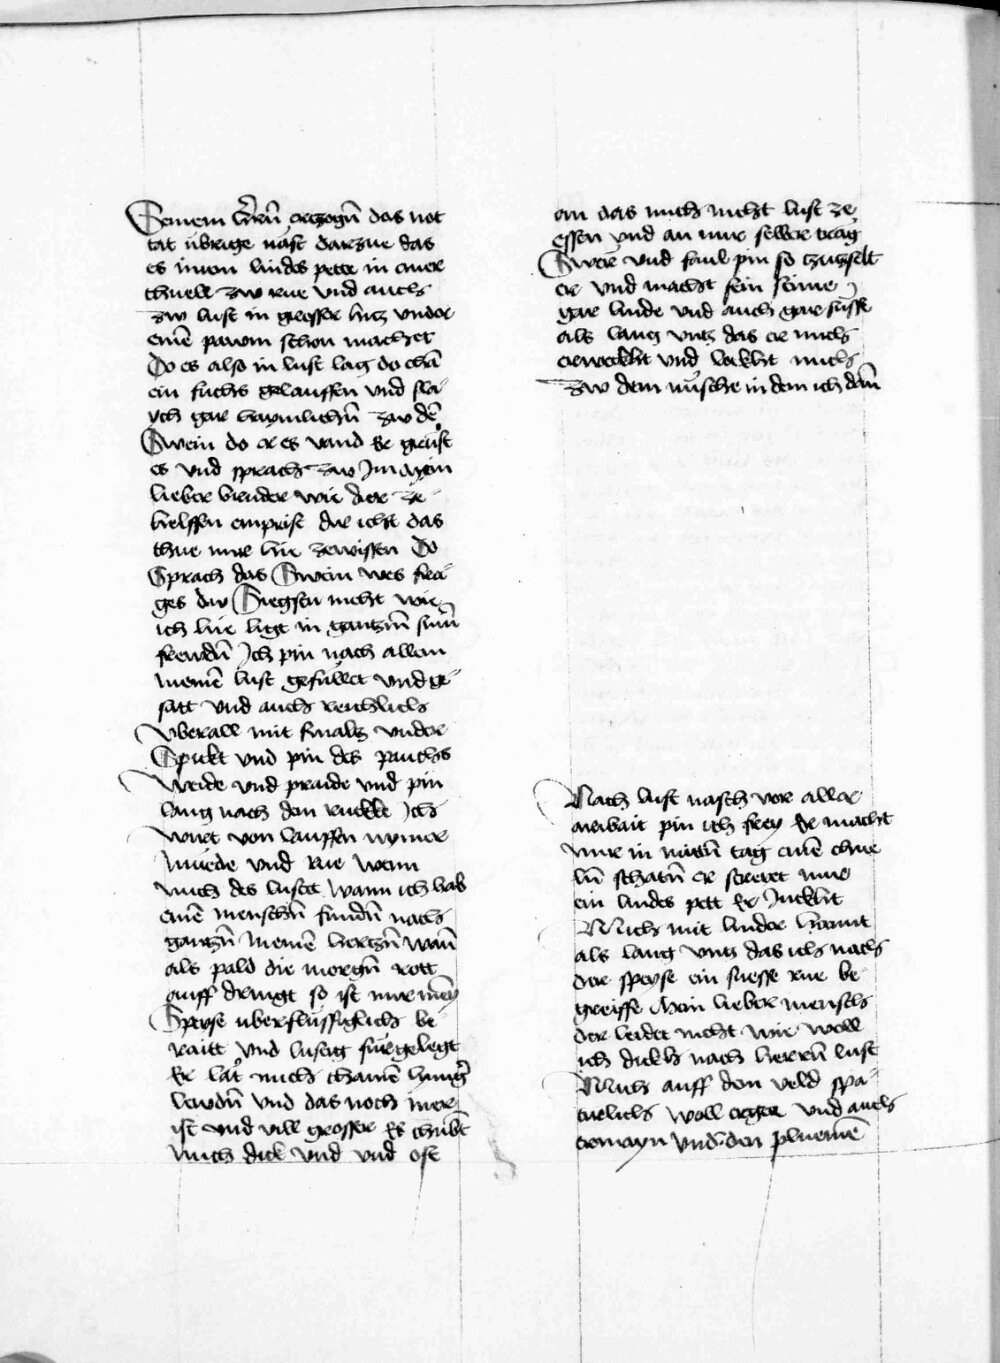 Seinem herrn erczogn das not
tat ubrige näst darzue das
es imem lindes pette in einer
chuell zw rue vnd auch
zw lust in grosser hitz vnder
einē pawm schon machset
Do es also in lust lag do chā
ein fuchs gelauffen vnd sla
ych gar haymlichn zw dē
Swein do er es vand Er grüst
es vnd sprach zw Im mein
lieber bruder wie dier ze
helffen emprist dir icht das
thue mir hie zewissen Do
Sprach das Swein wes fra
ges dw Siegstu nicht wie
ich hie ligt in gantzn sinn
frewdn Ich pin nach allem
meinē lust gefüllet vnd ge
satt vnd auch reichlich
vberall mit smaltz vnder
Spickt vnd pin des pauchs
Weide vnd praide vnd pin
lang nach dem ruckke Ich
würt von lauffen nymer
müede vnd rue wenn
mich des lustet Wann ich hab
einē menschn fundn nach
gantzn meinē hertzn wan
als pald die morgn rott
auff dringt so ist mir mein
Speyse uberflüssiglich be
raitt vnd lustig fürgelegt
Er lat mich chainē hunger
leydn vnd das noch mer
ist vnd vill grosser Es chübt
mich dick vnd vnd oft
an das mich nicht lust ze
essen vnd an mir selber trag
Swär vnd faul pin so chuczselt
er vnd macht sein stime
gar linde vnd auch gar süss
als lang vntz das er mich
erweckht vnd lockht mich
zw dem nüsche in dem ich dan
Nach lust nasch vor aller
arbait pin ich frey Er macht
mir in mittn tag einē chue
ln schatn er strewt mir
ein lindes pett Er Juckht
Mich mit linder hannt
als lang vntz das ich nach
der speyse ein suesse rue be
greiffe Mein lieber mensch
der leidet nicht wie woll
ich dickh nach herrn lust
Mich auff den veld spa
cierlich woll erger vnd auch
ermayn vnd den pluemē